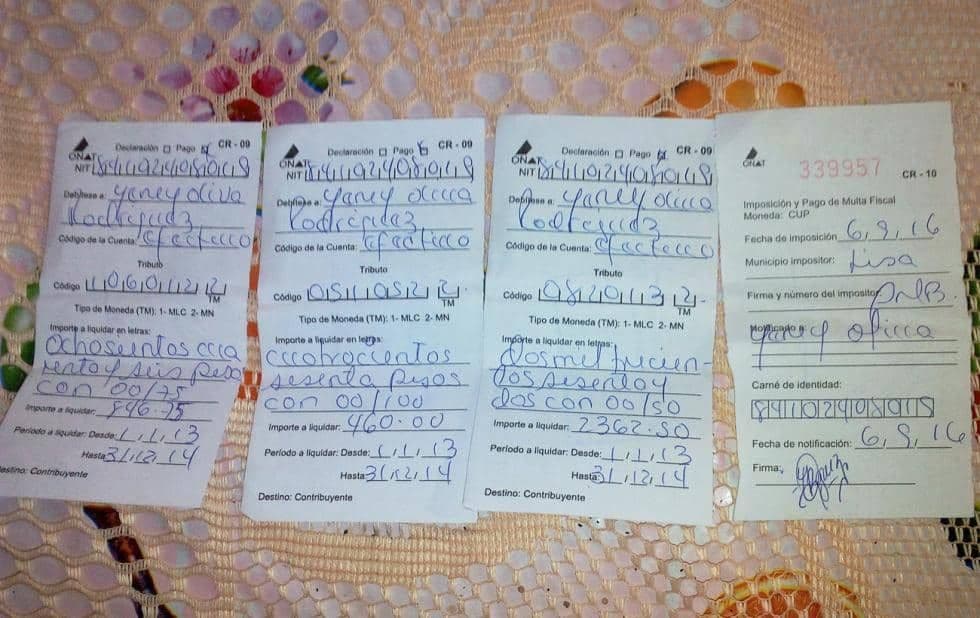 Declaración Pago CR - 09
ONAT
NIT 84110240809
Debítese a: Yaney Oliva
Rodriguez
Código de la Cuenta: efectivo
Tributo
Código 1060122
TM
Tipo de Moneda (TM): 1- MLC 2- MN
Importe a liquidar en letras:
pesos
con 00/75
Importe a liquidar: 896.75
Período a liquidar: Desde: 1,1,13
Hasta 31,12,14
Destino: Contribuyente
Declaración Pago CR - 09
ONAT
NIT
Debítese a: Yaney
Rodriguez
Código de la Cuenta: efectivo
Tributo
Código 0511052 2
TM
Tipo de Moneda (TM): 1- MLC 2- MN
Importe a liquidar en letras:
cuatrocientos
sesenta pesos
con 00/100
Importe a liquidar: 460.00
Período a liquidar: Desde: 1,1,13
Hasta 31,12,14
Destino: Contribuyente
Declaración Pago CR - 09
ONAT
NIT
Debítese a: Yaney
Rodriguez
Código de la Cuenta: efectivo
Tributo
Código 082013 2
TM
Tipo de Moneda (TM): 1- MLC 2- MN
Importe a liquidar en letras:
dos mil trecien-
tos sesenta y
dos con 00/50
Importe a liquidar: 2362.50
Período a liquidar: Desde: 1,1,13
Hasta: 31,12,14
Destino: Contribuyente
ONAT
339957
CR - 10
Imposición y Pago de Multa Fiscal
Moneda: CUP
Fecha de imposición 6,9,16
Municipio impositor: Lisa
Firma y número del impositor
Notificado a
Carné de identidad:
Fecha de notificación: 6,9,16
Firma: